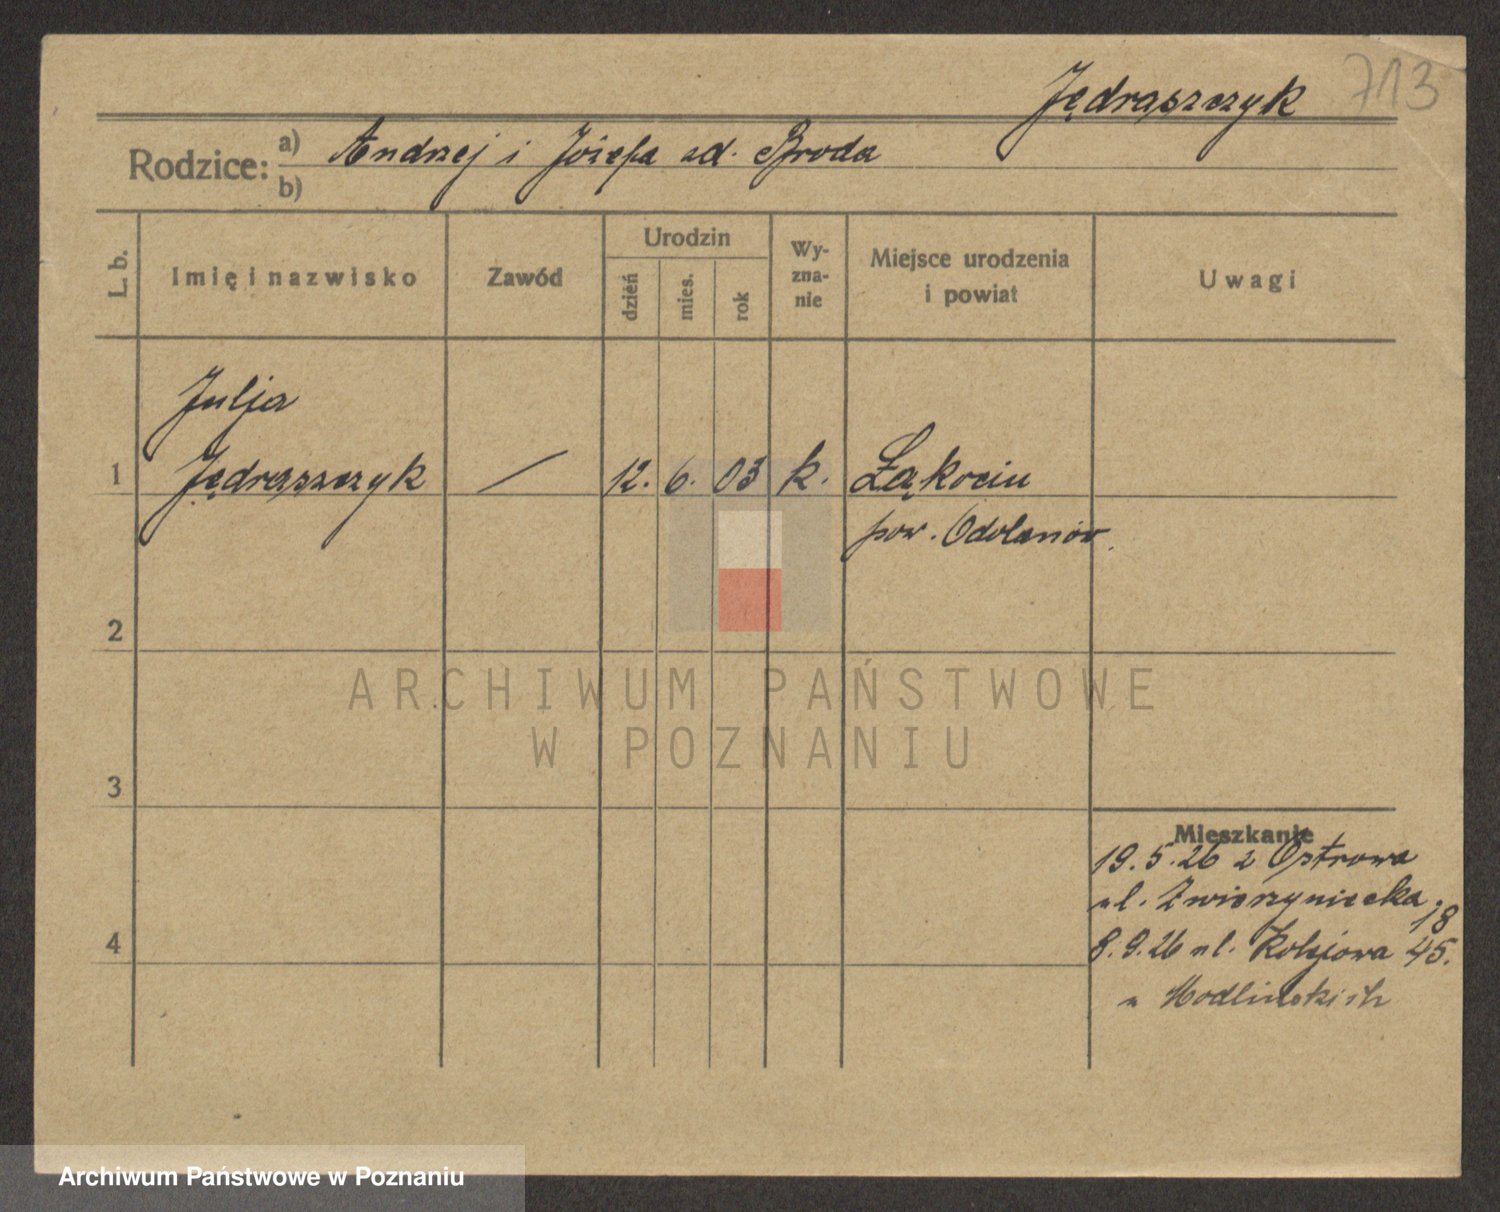 Jędraszczyk 713
Rodzice: a) Andrzej i Józefa zd. Broda
b)
L. b.
Imię i nazwisko
Zawód
Urodzin
dzień
mies.
rok
Wy-
zna-
nie
Miejsce urodzenia
i powiat
Uwagi
Julja
1 Jędraszczyk — 12. 6. 03 k. Łąkociu
pow. Odolanów.
2
3
4
Mieszkanie
19.5.26 z Ostrowa
ul. Zwierzyniecka 18
8.9.26 ul. Kolejowa 45.
u Modlińskich
ARCHIWUM PAŃSTWOWE
W POZNANIU
Archiwum Państwowe w Poznaniu